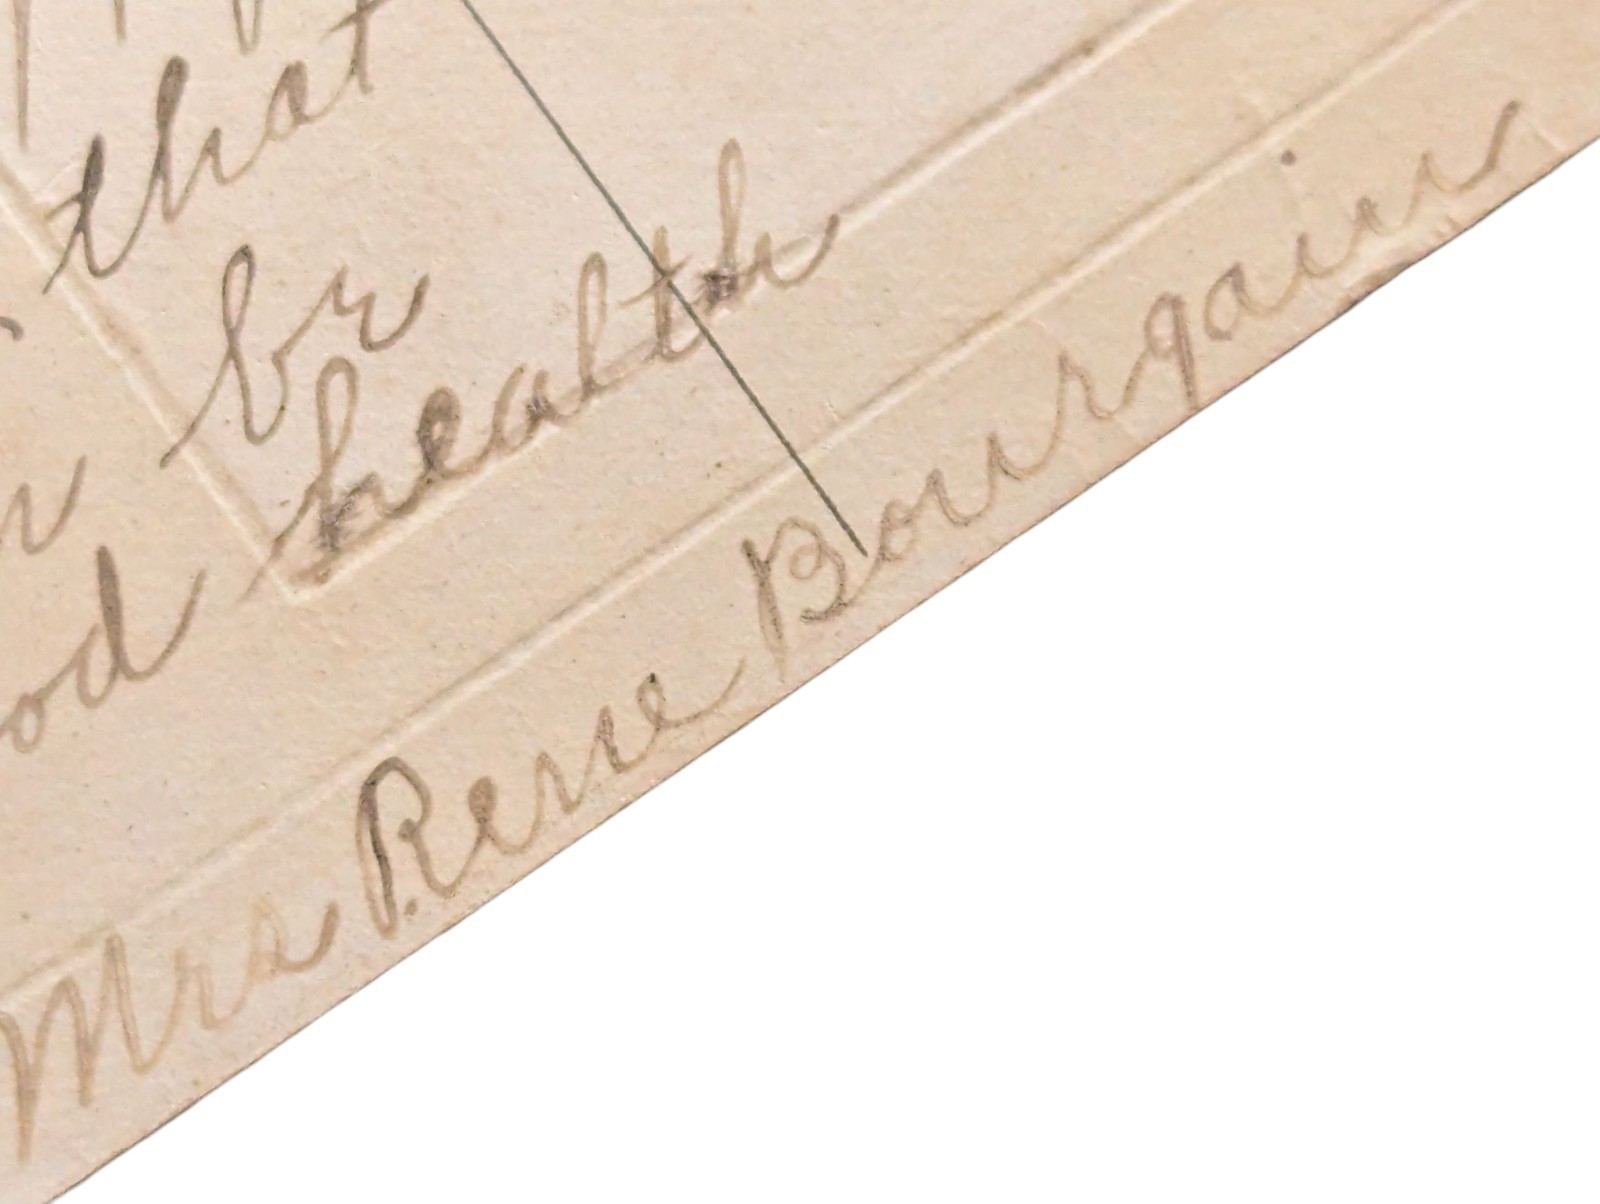 that
be
od health
Mrs Rene Bourgain